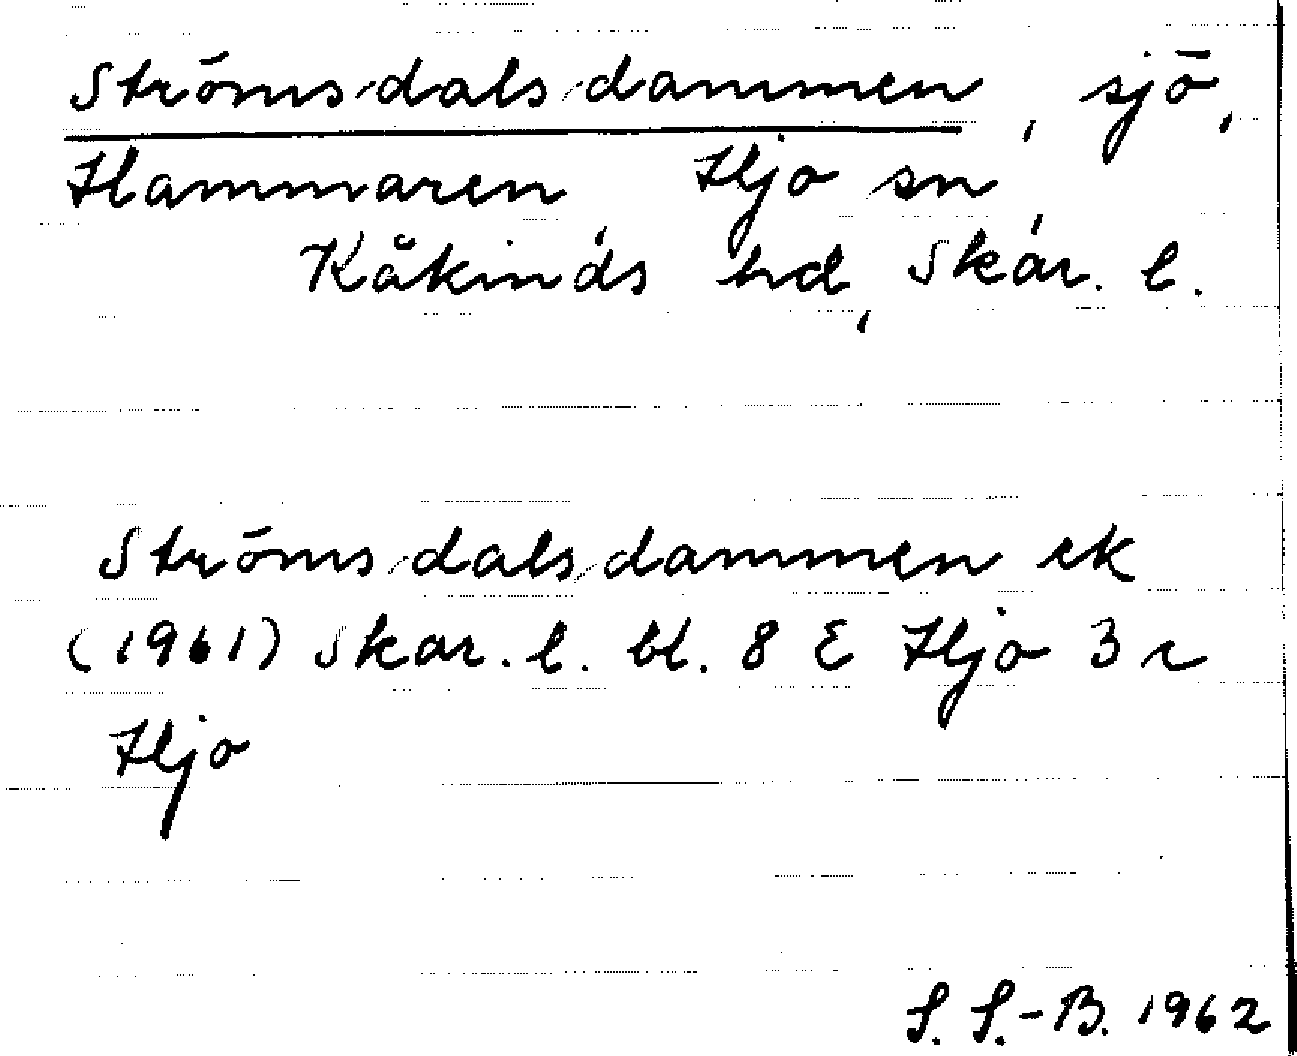 Strömsdalsdammen, sjö,
Hammaren, Hjo sn,
Kåkinds hd, Skar. l.
Strömsdalsdammen ek
(1961) Skar. l. bl. 8 E Hjo 3 c
Hjo
S. S.-B. 1962